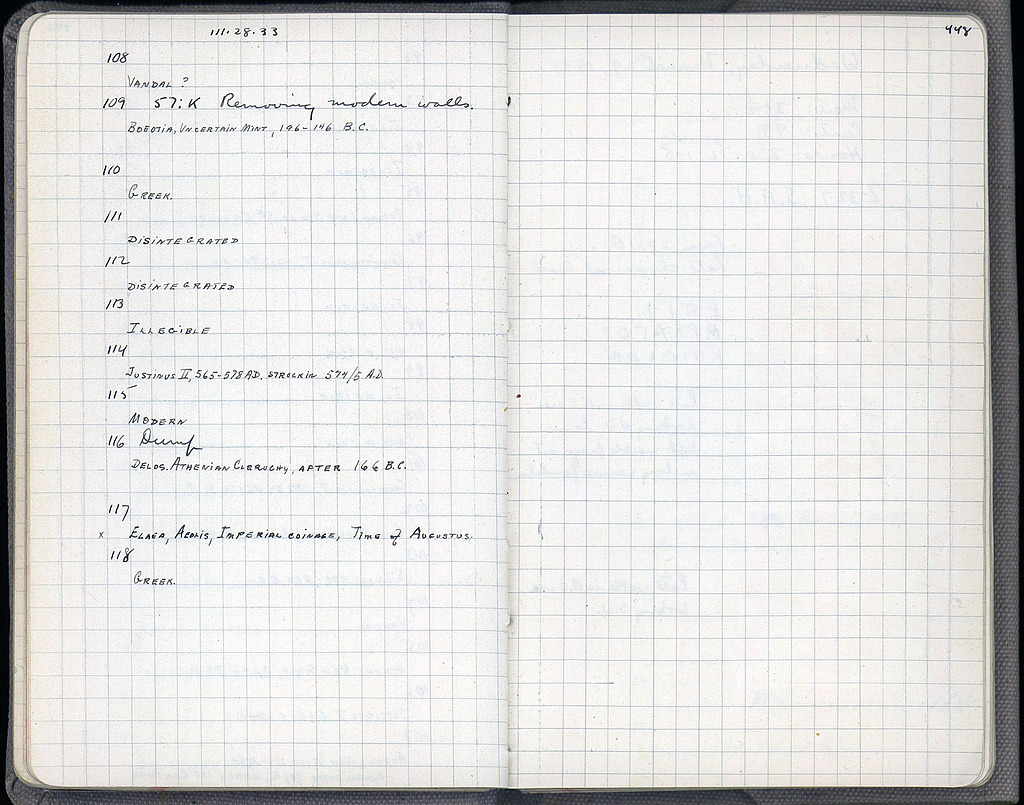 111·28·33
448
108
VANDAL?
109 57:K Removing modern walls.
BOEOTIA, UNCERTAIN MINT, 196-146 B.C.
110
GREEK.
111
DISINTEGRATED
112
DISINTEGRATED
113
ILLEGIBLE
114
JUSTINUS II, 565-578 AD. STRUCK IN 574/5 A.D.
115
MODERN
116 Dump
DELOS. ATHENIAN CLERUCHY, AFTER 166 B.C.
117
x ELAEA, AEOLIS, IMPERIAL COINAGE, TIME of AUGUSTUS.
118
GREEK.